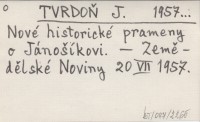 TVRDOŇ J. 1957...
Nové historické prameny
o Jánošíkovi. — Země-
dělské Noviny 20 VII 1957.